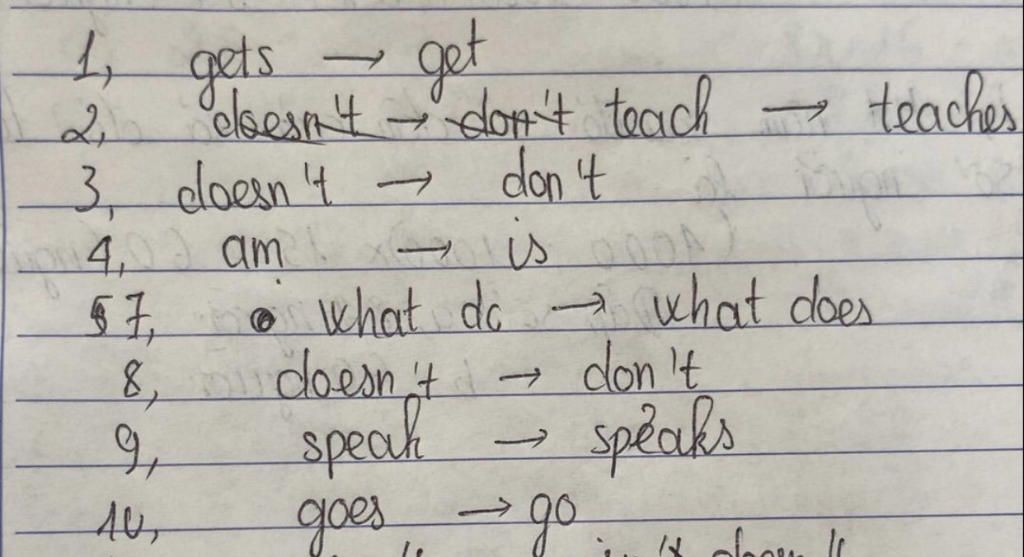 1, gets → get
2, doesn't → don't teach → teaches
3, doesn't → don't
4, am → is
7, what do → what does
8, doesn't → don't
9, speak → speaks
10, goes → go